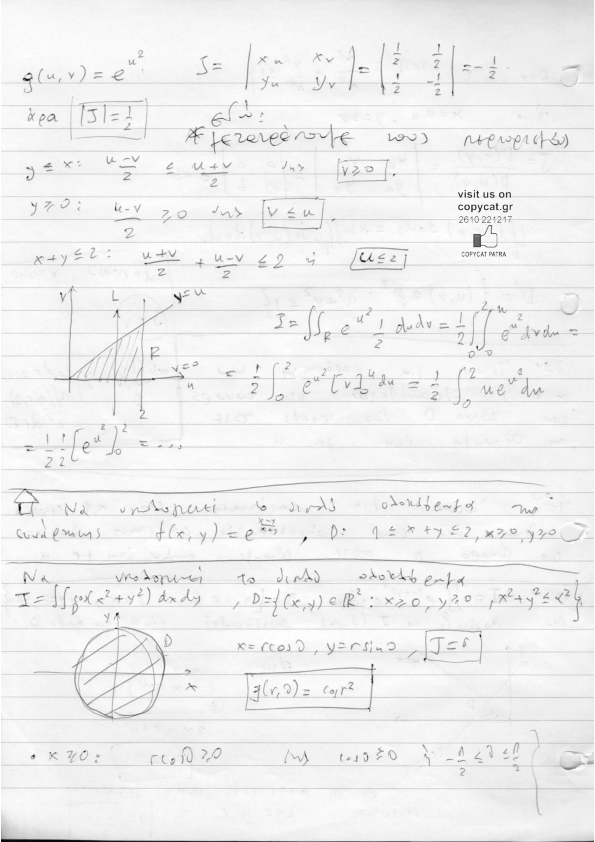 g(u,v) = e^{u^2}   J = |x_u x_v / y_u y_v| = |1/2 1/2 / 1/2 -1/2| = -1/2.
άρα |J| = 1/2
μετατρέπουμε τους περιορισμούς
y ≤ x: (u-v)/2 ≤ (u+v)/2 v ≥ 0.
y ≥ 0: (u-v)/2 ≥ 0 v ≤ u.
x+y ≤ 2: (u+v)/2 + (u-v)/2 ≤ 2 ή u ≤ 2
visit us on
copycat.gr
2610 221217
COPYCAT PATRA
v L v=u
R v=0 u
2
I = ∬_R e^{u^2} 1/2 du dv = 1/2 ∫_0^2 ∫_0^u e^{u^2} dv du =
= 1/2 ∫_0^2 e^{u^2} [v]_0^u du = 1/2 ∫_0^2 u e^{u^2} du
= 1/2 1/2 [e^{u^2}]_0^2 = ...
Να υπολογιστεί το διπλό ολοκλήρωμα της
συνάρτησης f(x,y) = e^{(x-y)/(x+y)}, D: 1 ≤ x+y ≤ 2, x ≥ 0, y ≥ 0
Να υπολογιστεί το διπλό ολοκλήρωμα
I = ∬_D cos(x^2+y^2) dxdy, D = {(x,y) ∈ ℝ^2 : x ≥ 0, y ≥ 0, x^2+y^2 ≤ α^2}
y D x
x = r cosθ, y = r sinθ, J = r
g(r,θ) = cos r^2
• x ≥ 0: r cosθ ≥ 0 cosθ ≥ 0 ή -π/2 ≤ θ ≤ π/2